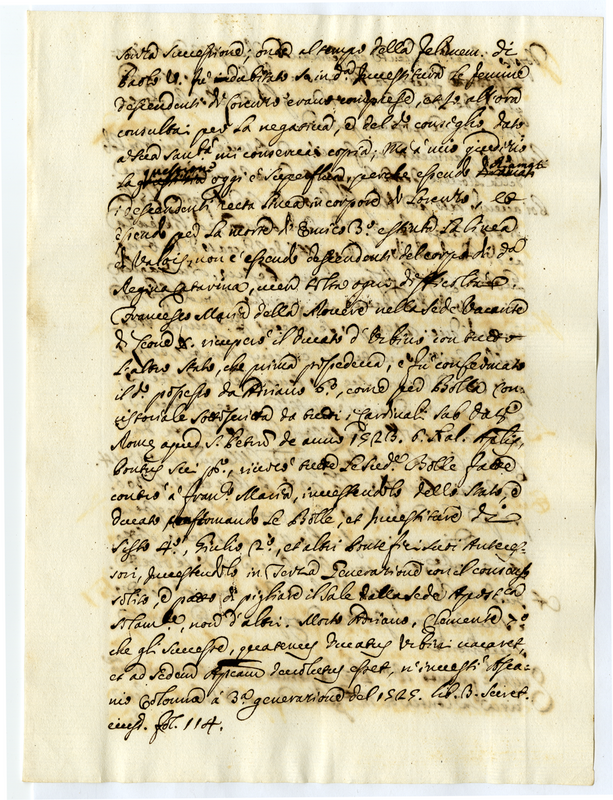 senza successione; onde al tempo della fe: mem: di
Paolo V. fù indubitato se in d.ª Investitura le femine
descendenti di Lorenzo erano comprese, et se all'ora
consultai per la negativa, e del d.º consiglio dato
a Sua Sant.tà mi conservai copia; Ma à mio giuditio
la questione oggi è superflua, perche essendo
i descendenti recta linea in corpore di Lorenzo, et
essendo per la morte d'Enrico 3.º estinta la linea
di Valois, non essendo descendenti del corpo di d.ª
Regina Catarina, ogni difficoltà.
Francesco Maria della Rovere nella Sede Vacante
di Leone X. ricuperò il Ducato d'Urbino con tutto
l'altro stato, che prima possedeva, e fu confermato
il d.º possesso da Adriano 6.º, come per Bolla Con-
cistoriale sottoscritta da tutti i Cardinali sub dat.
Rome apud S. Petrum de anno 1523. 6. Kal. Aplis,
Pontus sui p.º, rivocò tutte le sud.e Bolle fatte
contro à Fran.º Maria, investendolo dello stato, e
Ducato confermando le Bolle, et Investiture di
Sisto 4.º, Giulio 2.º, et altri Pontefici suoi Anteces-
sori, Investendolo in terza generatione con il censo
solito, e patto di pigliare il sale dalla Sede Apostca
solam.te, non d'altri. Morto Adriano, Clemente 7.º
che gli successe, quatenus Ducatus Urbini vacaret,
et ad Sedem Apcam devolutus esset, n'investì Asca-
nio Colonna à 3.ª generatione del 1525. lib. 3. Secret.
eiusd. fol. 114.